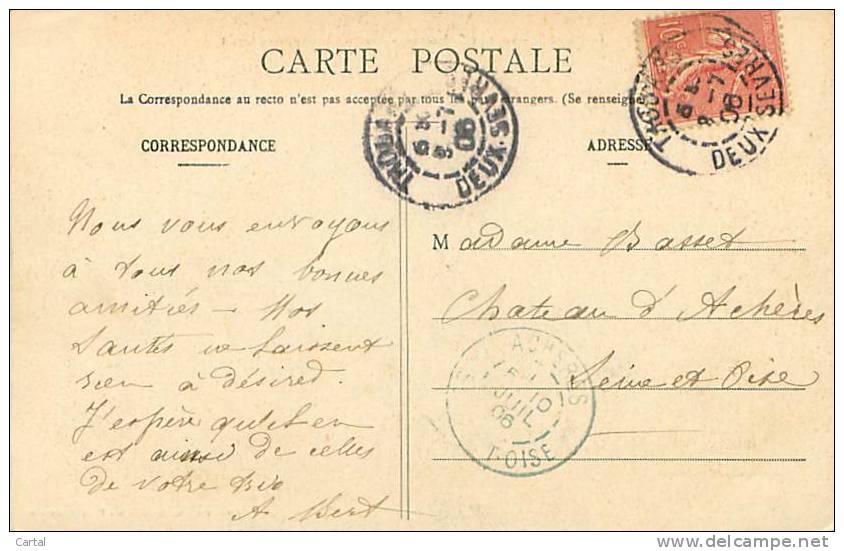 CARTE POSTALE
La Correspondance au recto n'est pas acceptée par tous les pays étrangers. (Se renseigner
CORRESPONDANCE
ADRESSE
10c
THOUARS
9-7
06
DEUX-SEVRES
THOUARS
9-7
06
DEUX-SEVRES
Nous vous envoyons
à tous nos bonnes
amitiés – Nos
santés ne laissent
rien à désired.
J'espère qu'il en
est ainsi de celles
de votre
A Bert
Madame Basset
Chateau d'Achères
Seine et Oise
ACHERES
10
JUIL
06
S.-ET-OISE
Cartal
delcampe.net